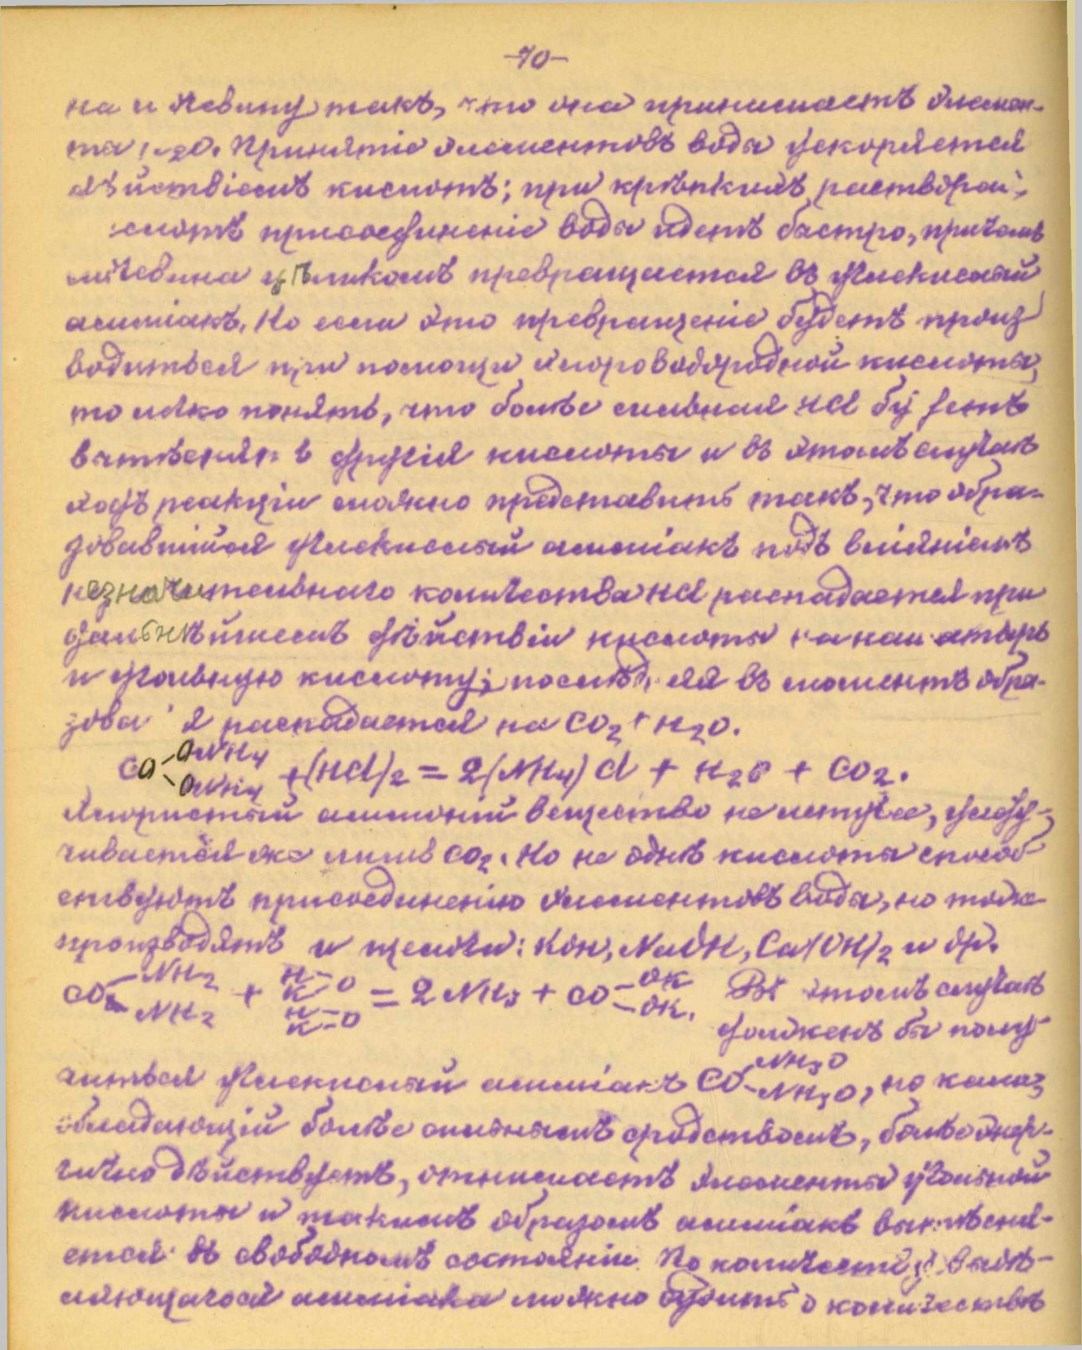 -70-
на и мочевину такъ, что она принимаетъ элемен-
та H2O. Принятіе элементовъ воды ускоряется
дѣйствіемъ кислотъ; при крѣпкихъ растворахъ
кислотъ присоединеніе воды идетъ быстро, причемъ
мочевина цѣликомъ превращается въ углекислый
амміакъ. Но если это превращеніе будетъ произ
водиться при помощи хлороводородной кислоты,
то легко понять, что болѣе сильная HCl будетъ
вытѣснять другія кислоты и въ этомъ случаѣ
ходъ реакціи можно представить такъ, что обра-
зовавшійся углекислый амміакъ подъ вліяніемъ
незначительнаго количества HCl распадается при
дальнѣйшемъ дѣйствіи кислоты на нашатырь
и угольную кислоту; послѣдняя въ моментъ обра-
зованія распадается на CO2 + H2O.
CO ONH4 ONH4 + (HCl)2 = 2(NH4)Cl + H2O + CO2.
Хлористый аммоній вещество не летучее, улету-
чивается же лишь CO2. Но не однѣ кислоты способ
ствуютъ присоединенію элементовъ воды, но тоже
производятъ и щелочи: KOH, NaOH, Ca(OH)2 и др.
CO NH2 NH2 + H K O H K O = 2NH3 + CO OK OK. Въ этомъ случаѣ
долженъ бы полу-
читься углекислый амміакъ CO NH3O NH3O, но кали,
обладающій болѣе сильнымъ сродствомъ, болѣе энер-
гично дѣйствуетъ, отнимаетъ элементы угольной
кислоты и такимъ образомъ амміакъ вытѣсня-
ется въ свободномъ состояніи. По количеству выдѣ-
ляющагося амміака можно судить о количествѣ